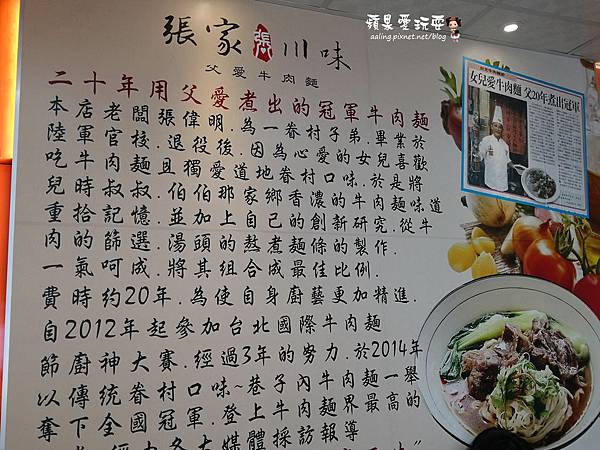 蘋果愛玩耍
aaling.pixnet.net/blog
張家 張 川味
父愛牛肉麵
二十年用父愛煮出的冠軍牛肉麵
本店老闆張偉明.為一眷村子弟.畢業於
陸軍官校.退役後.因為心愛的女兒喜歡
吃牛肉麵且獨愛道地眷村口味.於是將
兒時叔叔.伯伯那家鄉香濃的牛肉麵味道
重拾記憶.並加上自己的創新研究.從牛
肉的篩選.湯頭的熬煮麵條的製作.
一氣呵成.將其組合成最佳比例.
費時約20年.為使自身廚藝更加精進.
自2012年起參加台北國際牛肉麵
節廚神大賽.經過3年的努力.於2014年
以傳統眷村口味~巷子內牛肉麵一舉
奪下全國冠軍.登上牛肉麵界最高的
各大媒體採訪報導
女兒愛牛肉麵 父20年煮出冠軍